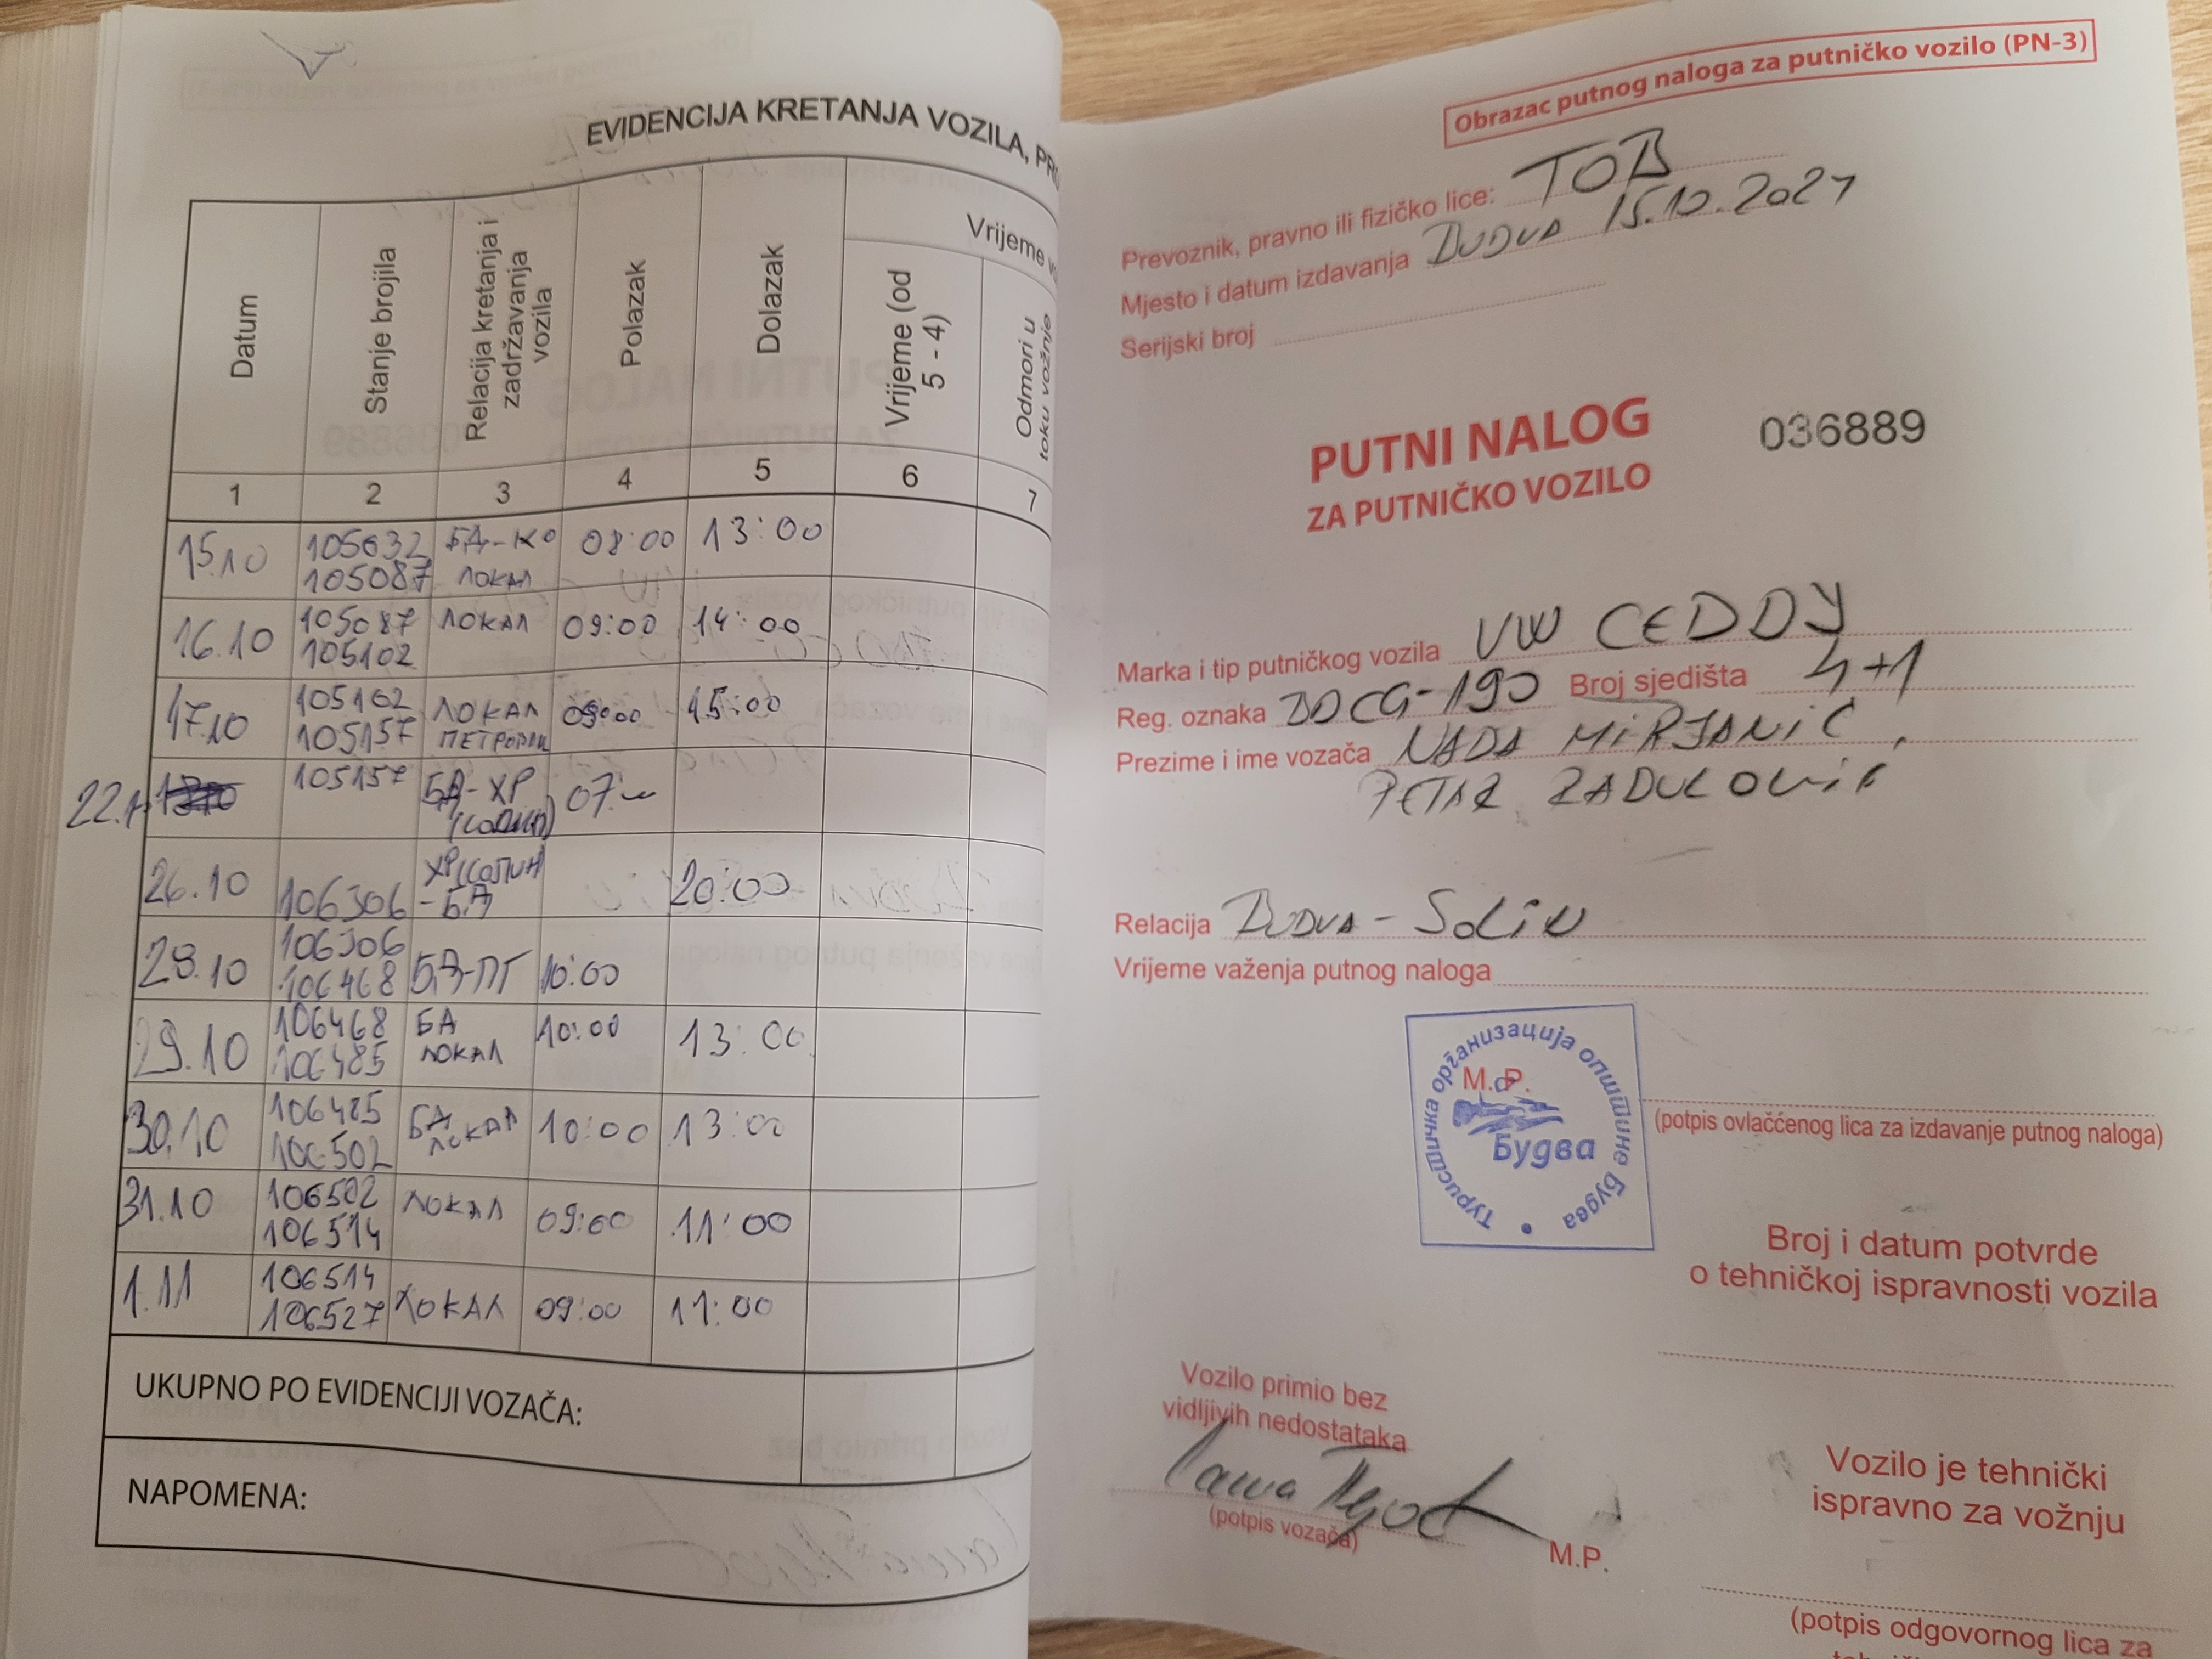 EVIDENCIJA KRETANJA VOZILA,
Datum
Stanje brojila
Relacija kretanja i
zadržavanja
vozila
Polazak
Dolazak
Vrijeme
Vrijeme (od
5 - 4)
Odmori u
toku vožnje
1 2 3 4 5 6 7
15.10 105632 БД-КО 08:00 13:00
105087 ЛОКАЛ
16.10 105087 ЛОКАЛ 09:00 14:00
105102
17.10 105102 ЛОКАЛ 09:00 15:00
105157
105157 БД-ХР
26.10 20:00
106306 - БД
28.10 106306 БД-ПГ 10:00
106468
29.10 106468 БД 10:00 13:00
106485 ЛОКАЛ
30.10 106485 БД 10:00 13:00
106502 ЛОКАЛ
31.10 106502 ЛОКАЛ 09:00 11:00
106514
1.11 106514 ЛОКАЛ 09:00 11:00
106527
UKUPNO PO EVIDENCIJI VOZAČA:
NAPOMENA:
Obrazac putnog naloga za putničko vozilo (PN-3)
Prevoznik, pravno ili fizičko lice: TOB
Mjesto i datum izdavanja BUDVA 15.10.2021
Serijski broj
PUTNI NALOG 036889
ZA PUTNIČKO VOZILO
Marka i tip putničkog vozila VW CEDDY
Reg. oznaka BDCG-190 Broj sjedišta 4+1
Prezime i ime vozača NADA MIRJANIĆ,
PETAR RADULOVIĆ
Relacija BUDVA - SOLIN
Vrijeme važenja putnog naloga
M.P.
Туристичка организација општине Будва
Будва
(potpis ovlašćenog lica za izdavanje putnog naloga)
Broj i datum potvrde
o tehničkoj ispravnosti vozila
Vozilo primio bez
vidljivih nedostataka
(potpis vozača)
M.P.
Vozilo je tehnički
ispravno za vožnju
(potpis odgovornog lica za